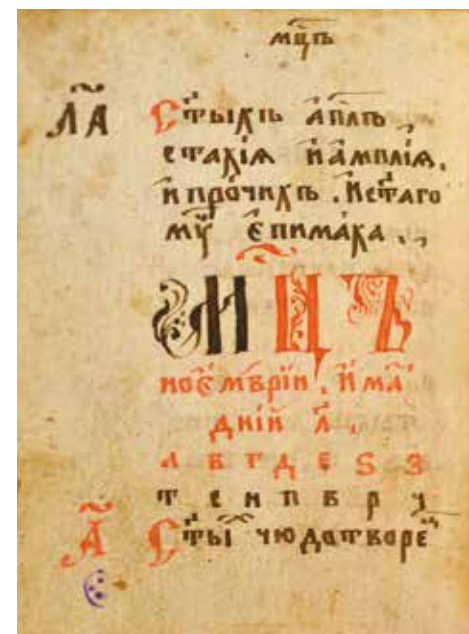 мцъ
л҃а Ст҃ыхъ ап҃лъ
стахїѧ и амплїѧ.
и прочихъ. и ст҃аго
мч҃ епимака.
МЦЪ
ноемврїи. има҃
днїй л҃.
а в г д е ѕ з
с҃ Ст҃ы чюдотворе